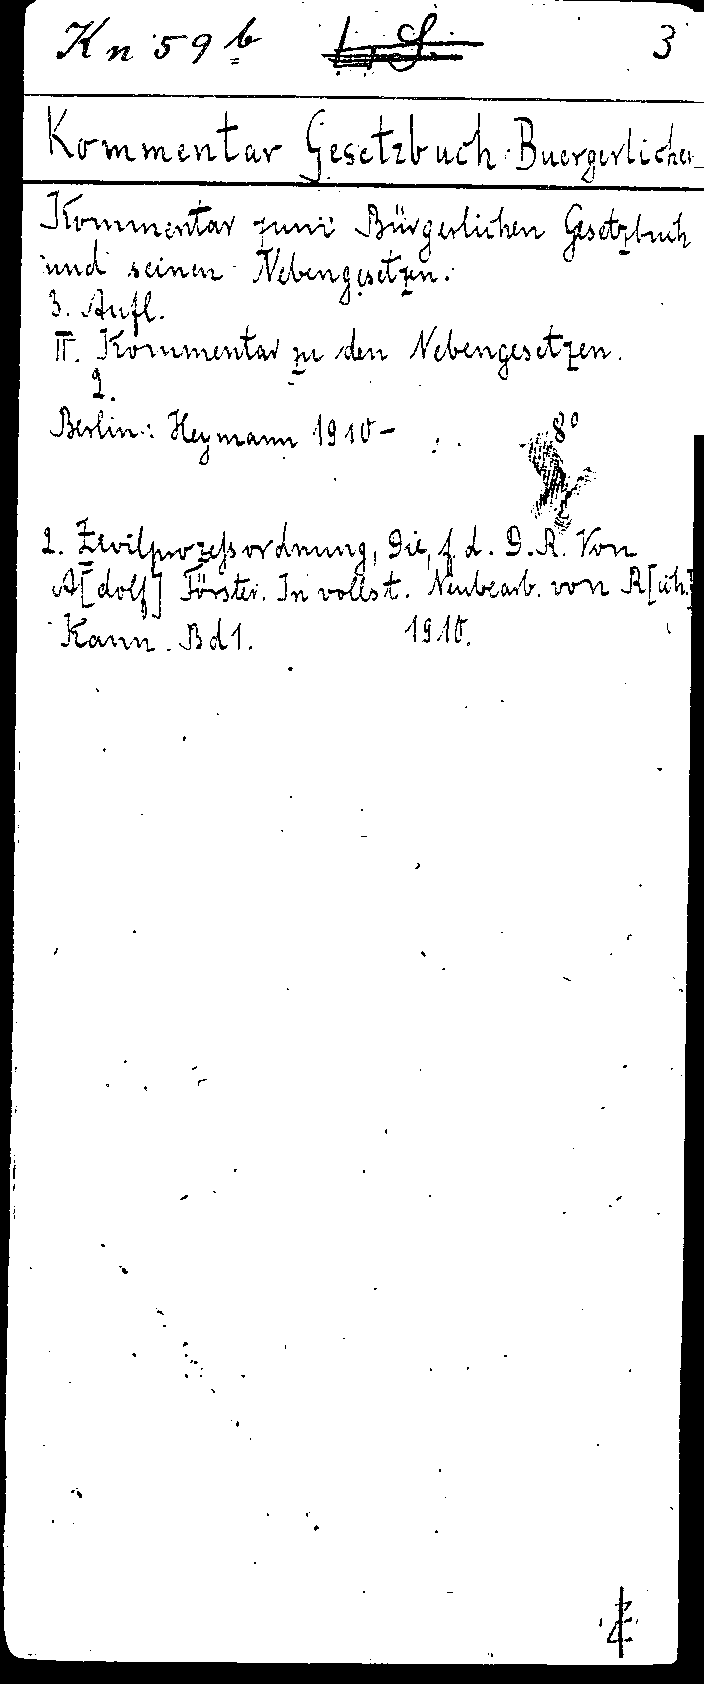 Kn 59 b 3
Kommentar Gesetzbuch Buergerliches
Kommentar zum Bürgerlichen Gesetzbuch
und seinen Nebengesetzen.
3. Aufl.
II. Kommentar zu den Nebengesetzen.
2.
Berlin: Heymann 1910- 8°
2. Zivilprozeßordnung, Die, f. d. D. R. Von
A[dolf] Förster. In vollst. Neubearb. von R[ich.]
Kann. Bd 1. 1910.